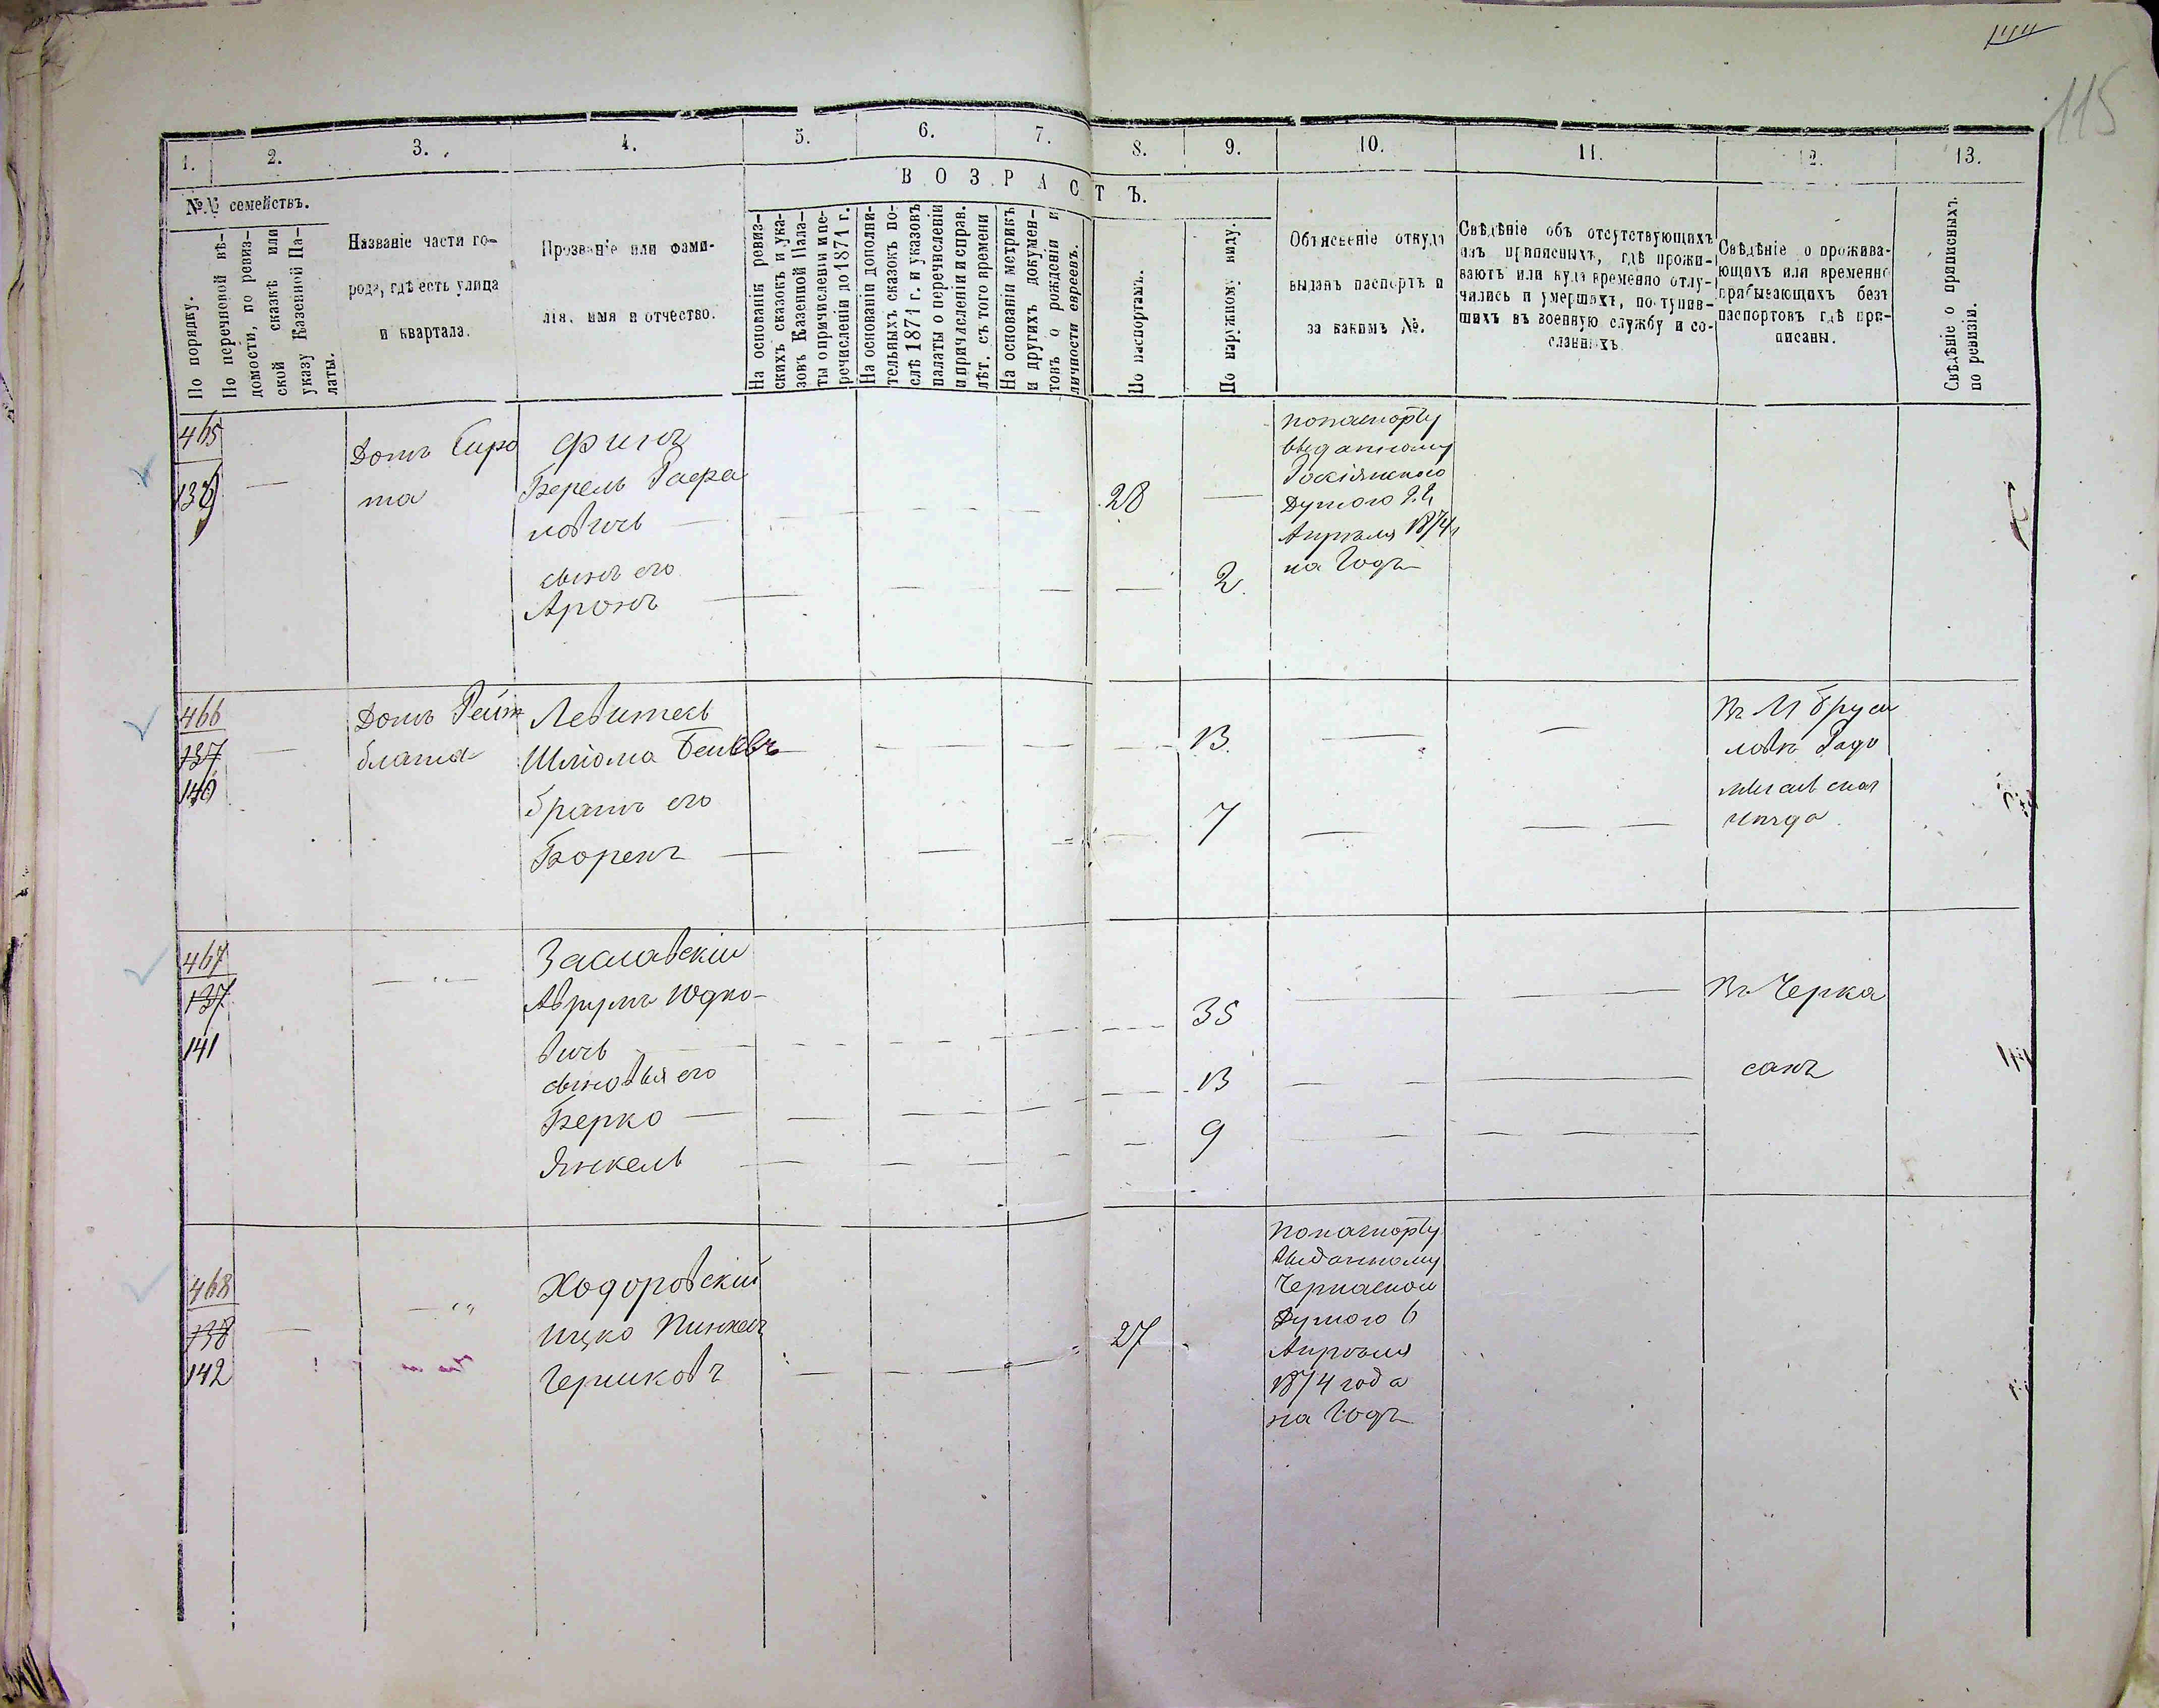 115
1. 2. 3. 4. 5. 6. 7. 8. 9. 10. 11. 12. 13.
№№ семействъ.
По порядку.
По перечновой вѣ-
домости, по ревиз-
ской сказкѣ или
указу Казенной Па-
латы.
Названіе части го-
рода, гдѣ есть улица
и квартала.
Прозваніе или фами-
лія, имя и отчество.
ВОЗРАСТЪ.
На основаніи ревиз-
скихъ сказокъ и ука-
зовъ Казенной Пала-
ты о причисленіи и пе-
речисленіи до 1871 г.
На основаніи дополни-
тельныхъ сказокъ по-
слѣ 1871 г. и указовъ
палаты о перечисленіи
и причисленіи и справ.
лѣт. съ того времени
На основаніи метрикъ
и другихъ докумен-
товъ о рожденіи и
личности евреевъ.
По паспортамъ.
По наружному виду.
Объясненіе откуда
выданъ паспортъ и
за какимъ №.
Свѣдѣніе объ отсутствующихъ
изъ приписныхъ, гдѣ прожи-
ваютъ или куда временно отлу-
чились и умершихъ, поступив-
шихъ въ военную службу и со-
сланныхъ
Свѣдѣніе о прожива-
ющихъ или временно
прибывающихъ безъ
паспортовъ гдѣ при-
писаны.
Свѣдѣніе о приписныхъ
по ревизіи.
465
Домъ Сиро
та
Финъ
Берель Рафа
ловичь
28
сынъ его
Аронъ
2
попаспорту
выданному
Думою 22
Апрѣля 1874
на Годъ
466
137
140
Домъ Рейт
блата
Левитесъ
Шліома
13
братъ его
7
Въ М Бруси
ловѣ Радо
467
137
141
Заславскіи
Аврумъ Юдко-
вичь
35
сыновья его
Берко
13
Янкель
9
Въ Черка
сахъ
468
138
142
Ходоровскій
Ицко Пинхасъ
Гершковъ
27
Попаспорту
Выданному
Черкаской
Думою 6
Апрѣля
1874 года
на Годъ